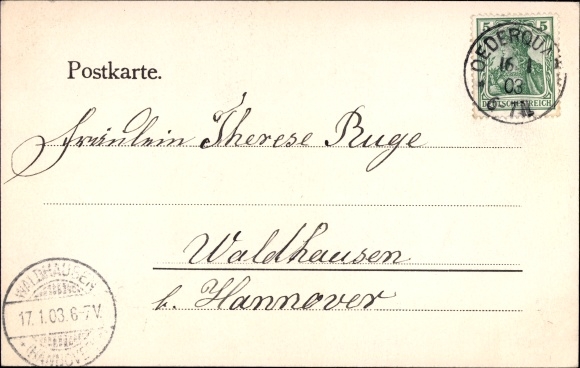 5 5
DEUTSCHES REICH
16 1
03
Postkarte.
Fräulein Therese Ruge
Waldhausen
b. Hannover
WALDHAUSEN
17.1.03.6-7V.
* (HANNOVER) *